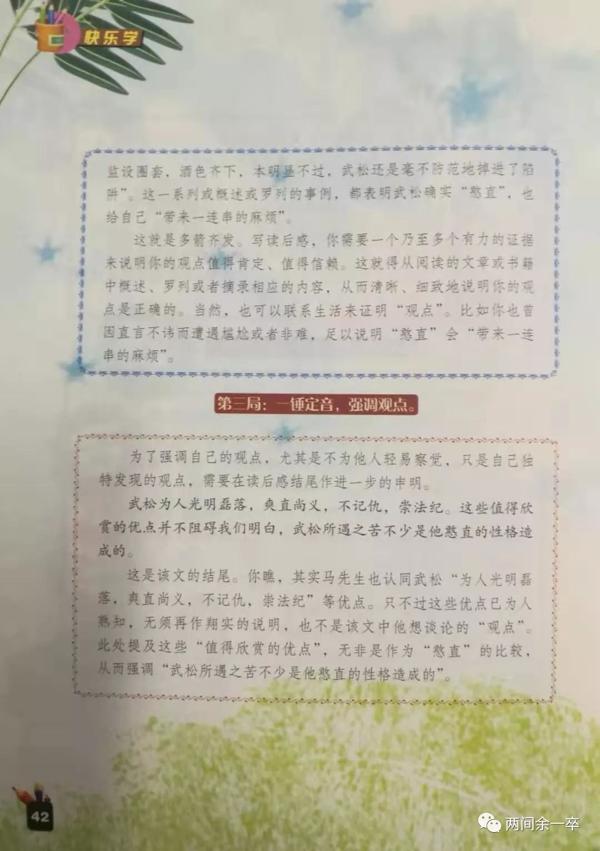 快乐学
监设圈套，酒色齐下，本明显不过，武松还是毫不防范地掉进了陷
阱”。这一系列或概述或罗列的事例，都表明武松确实“憨直”，也
给自己“带来一连串的麻烦”。
这就是多箭齐发。写读后感，你需要一个乃至多个有力的证据
来说明你的观点值得肯定、值得信赖。这就得从阅读的文章或书籍
中概述、罗列或者摘录相应的内容，从而清晰、细致地说明你的观
点是正确的。当然，也可以联系生活来证明“观点”。比如你也曾
因直言不讳而遭遇尴尬或者非难，足以说明“憨直”会“带来一连
串的麻烦”。
第三局：一锤定音，强调观点。
为了强调自己的观点，尤其是不为他人轻易察觉，只是自己独
特发现的观点，需要在读后感结尾作进一步的申明。
武松为人光明磊落，爽直尚义，不记仇，崇法纪。这些值得欣
赏的优点并不阻碍我们明白，武松所遇之苦不少是他憨直的性格造
成的。
这是该文的结尾。你瞧，其实马先生也认同武松“为人光明磊
落，爽直尚义，不记仇，崇法纪”等优点。只不过这些优点已为人
熟知，无须再作翔实的说明，也不是该文中他想谈论的“观点”。
此处提及这些“值得欣赏的优点”，无非是作为“憨直”的比较，
从而强调“武松所遇之苦不少是他憨直的性格造成的”。
42
两间余一卒